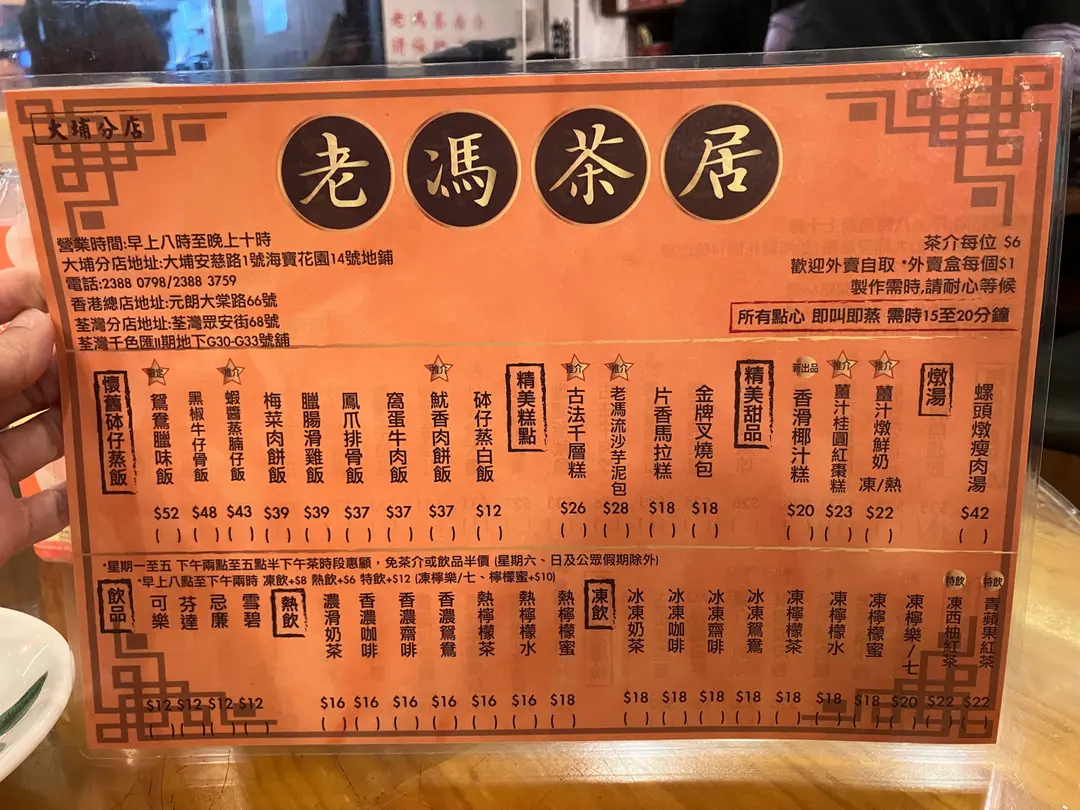 大埔分店
老馮茶居
營業時間:早上八時至晚上十時
大埔分店地址:大埔安慈路1號海寶花園14號地鋪
電話:2388 0798/2388 3759
香港總店地址:元朗大棠路66號
荃灣分店地址:荃灣眾安街68號
荃灣千色匯II期地下G30-G33號舖
茶介每位 $6
歡迎外賣自取 *外賣盒每個$1
製作需時,請耐心等候
所有點心 即叫即蒸 需時15至20分鐘
懷舊砵仔蒸飯
鴛鴦臘味飯 $52 ( )
黑椒牛仔骨飯 $48 ( )
推介 蝦醬蒸腩仔飯 $43 ( )
梅菜肉餅飯 $39 ( )
臘腸滑雞飯 $39 ( )
鳳爪排骨飯 $37 ( )
窩蛋牛肉飯 $37 ( )
推介 魷香肉餅飯 $37 ( )
砵仔蒸白飯 $12 ( )
精美糕點
推介 古法千層糕 $26 ( )
推介 老馮流沙芋泥包 $28 ( )
片香馬拉糕 $18 ( )
金牌叉燒包 $18 ( )
精美甜品
新出品 香滑椰汁糕 $20 ( )
推介 薑汁桂圓紅棗糕 $23 ( )
推介 薑汁燉鮮奶 凍/熱 $22 ( )
燉湯
螺頭燉瘦肉湯 $42 ( )
*星期一至五 下午兩點至五點半下午茶時段惠顧，免茶介或飲品半價 (星期六、日及公眾假期除外)
*早上八點至下午兩時 凍飲+$8 熱飲+$6 特飲+$12 (凍檸樂/七、檸檬蜜+$10)
飲品
可樂 $12 ( )
芬達 $12 ( )
忌廉 $12 ( )
雪碧 $12 ( )
熱飲
濃滑奶茶 $16 ( )
香濃咖啡 $16 ( )
香濃齋啡 $16 ( )
香濃鴛鴦 $16 ( )
熱檸檬茶 $16 ( )
熱檸檬水 $16 ( )
熱檸檬蜜 $18 ( )
凍飲
冰凍奶茶 $18 ( )
冰凍咖啡 $18 ( )
冰凍齋啡 $18 ( )
冰凍鴛鴦 $18 ( )
凍檸檬茶 $18 ( )
凍檸檬水 $18 ( )
凍檸檬蜜 $18 ( )
凍檸樂/七 $20 ( )
特飲 凍西柚紅茶 $22 ( )
特飲 青蘋果紅茶 $22 ( )